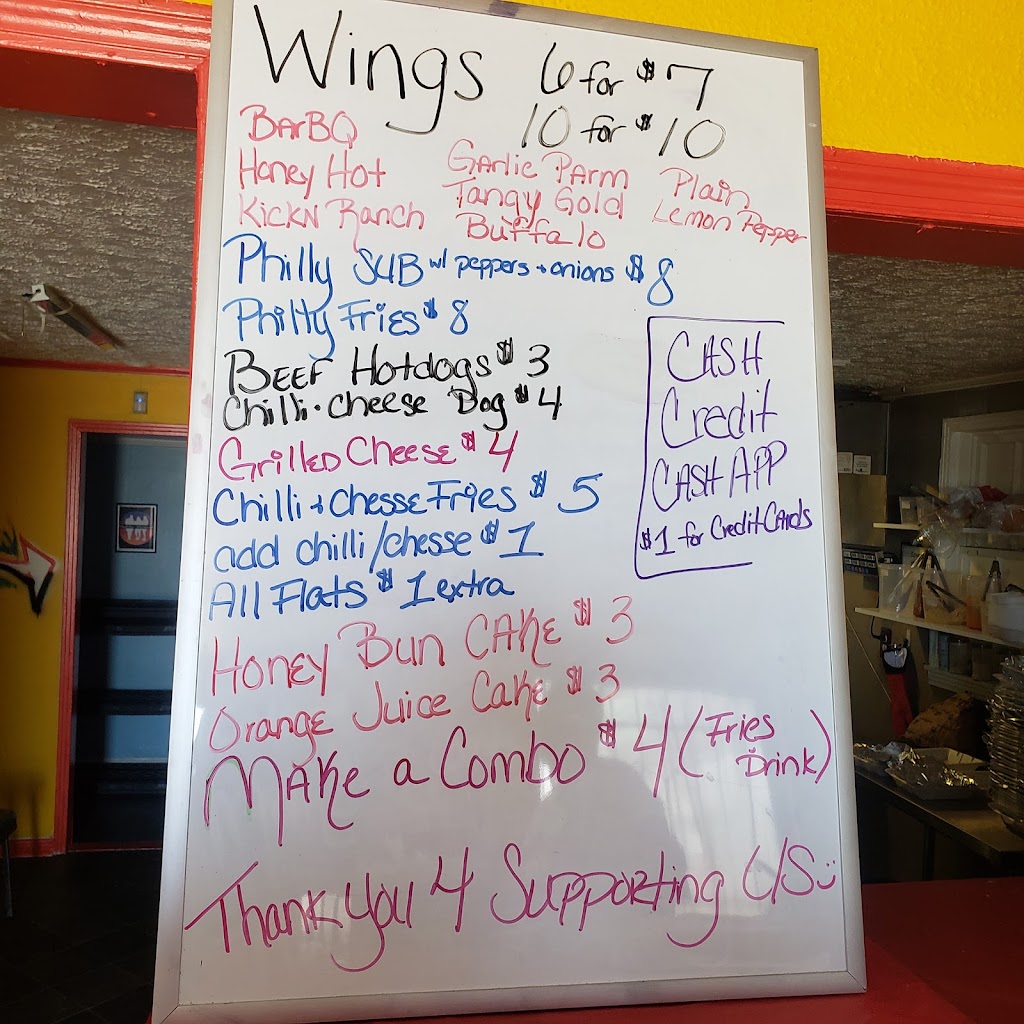 Wings 6 for $7
10 for $10
BarBQ
Honey Hot
Kickn Ranch
Garlic Parm
Tangy Gold
Buffalo
Plain
Lemon Pepper
Philly SUB w/ peppers + onions $8
Philly Fries $8
Beef Hotdogs $3
Chilli-Cheese Dog $4
Grilled Cheese $4
Chilli + Chesse Fries $5
add chilli/chesse $1
All Flats $1 extra
Cash
Credit
Cash App
$1 for Credit Cards
Honey Bun Cake $3
Orange Juice Cake $3
Make a Combo $4 (Fries Drink)
Thank You 4 Supporting US